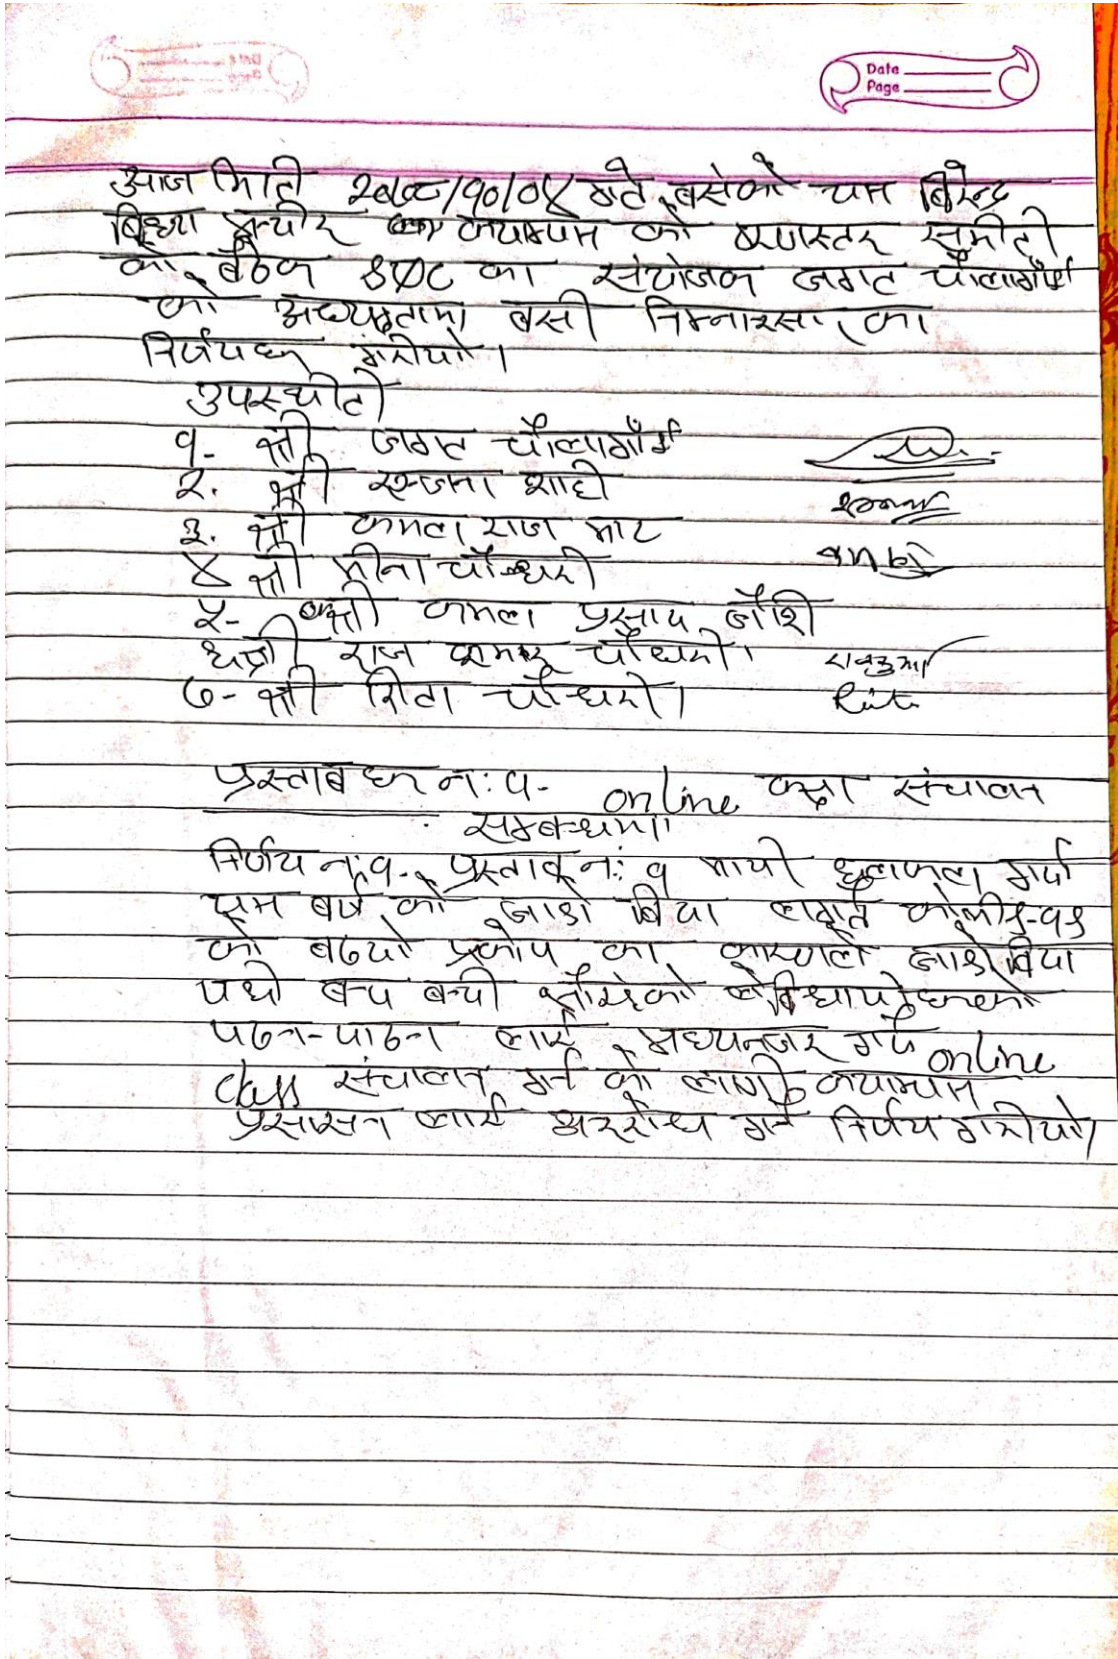 Date
Page
आज मिति २०७८/१०/०४ गते बसेको यस बिरेन्द्र
बिध्या मन्दीर क्याम्पस को स्तर समीती
को बैठक का संयोजक जगत चौलागाँई
को अध्यक्षतामा बसी निम्नानुसार का
निर्णयहरु गरीयो।
उपस्थीती
१- श्री जगत चौलागाँई
२. श्री शाही
३. श्री कमल राज भाट
४ श्री मीना चौधरी
५- श्री कमल प्रसाद जोशी
श्री राज कुमार चौधरी। राजकुमार
७- श्री रिता चौधरी। Rita
प्रस्ताब हरु न: १- online कक्षा संचालन
सम्बन्धमा।
निर्णय न: १- प्रस्ताब न: १ माथी छलफल गर्दा
यस बर्ष को जाडो बिदा लगतै कोभीड-१९
को बढ्दो प्रकोप का कारणले जाडो बिदा
पछी बन्द
पठन-पाठन लाई मध्यनजर गर्दै online
class संचालन गर्न को लागी क्याम्पस
प्रसासन लाई अनुरोध गर्ने निर्णय गरीयो।